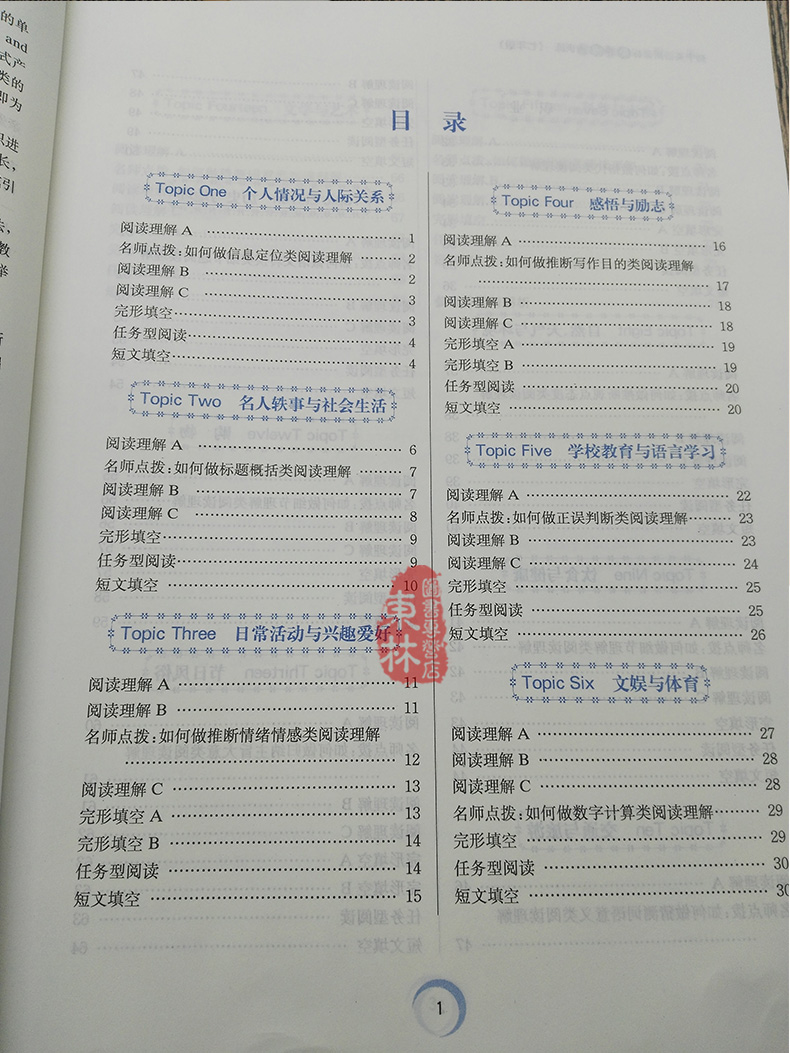 的单
and
式产
类的
即为
识进
长,
索引
法,
教
举
目 录
Topic One 个人情况与人际关系
阅读理解 A ……………………………… 1
名师点拨:如何做信息定位类阅读理解 ……… 2
阅读理解 B ……………………………… 2
阅读理解 C ……………………………… 3
完形填空……………………………… 3
任务型阅读……………………………… 4
短文填空……………………………… 4
Topic Two 名人轶事与社会生活
阅读理解 A ……………………………… 6
名师点拨:如何做标题概括类阅读理解 ……… 7
阅读理解 B ……………………………… 7
阅读理解 C ……………………………… 8
完形填空……………………………… 9
任务型阅读……………………………… 9
短文填空 ……………………………… 10
Topic Three 日常活动与兴趣爱好
阅读理解 A ……………………………… 11
阅读理解 B ……………………………… 11
名师点拨:如何做推断情绪情感类阅读理解
……………………………… 12
阅读理解 C ……………………………… 13
完形填空 A ……………………………… 13
完形填空 B ……………………………… 14
任务型阅读 ……………………………… 14
短文填空 ……………………………… 15
Topic Four 感悟与励志
阅读理解 A ……………………………… 16
名师点拨:如何做推断写作目的类阅读理解
……………………………… 17
阅读理解 B ……………………………… 18
阅读理解 C ……………………………… 18
完形填空 A ……………………………… 19
完形填空 B ……………………………… 19
任务型阅读 ……………………………… 20
短文填空 ……………………………… 20
Topic Five 学校教育与语言学习
阅读理解 A ……………………………… 22
名师点拨:如何做正误判断类阅读理解……… 23
阅读理解 B ……………………………… 23
阅读理解 C ……………………………… 24
完形填空 ……………………………… 25
任务型阅读 ……………………………… 25
短文填空 ……………………………… 26
Topic Six 文娱与体育
阅读理解 A ……………………………… 27
阅读理解 B ……………………………… 28
阅读理解 C ……………………………… 28
名师点拨:如何做数字计算类阅读理解……… 29
完形填空 ……………………………… 29
任务型阅读 ……………………………… 30
短文填空 ……………………………… 30
東林
圖書專營店
1